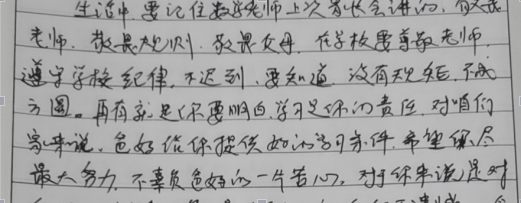 生活中,要记住数学老师上次家长会讲的,敬畏
老师,敬畏规则,敬畏父母,在学校要尊敬老师
遵守学校纪律,不迟到,要知道 没有规矩,不成
方圆。再有就是你要明白,学习是你的责任,对咱们
家来说,爸妈给你提供好的学习条件,希望你尽
最大努力,不辜负爸妈的一片苦心。对于你来说,是对